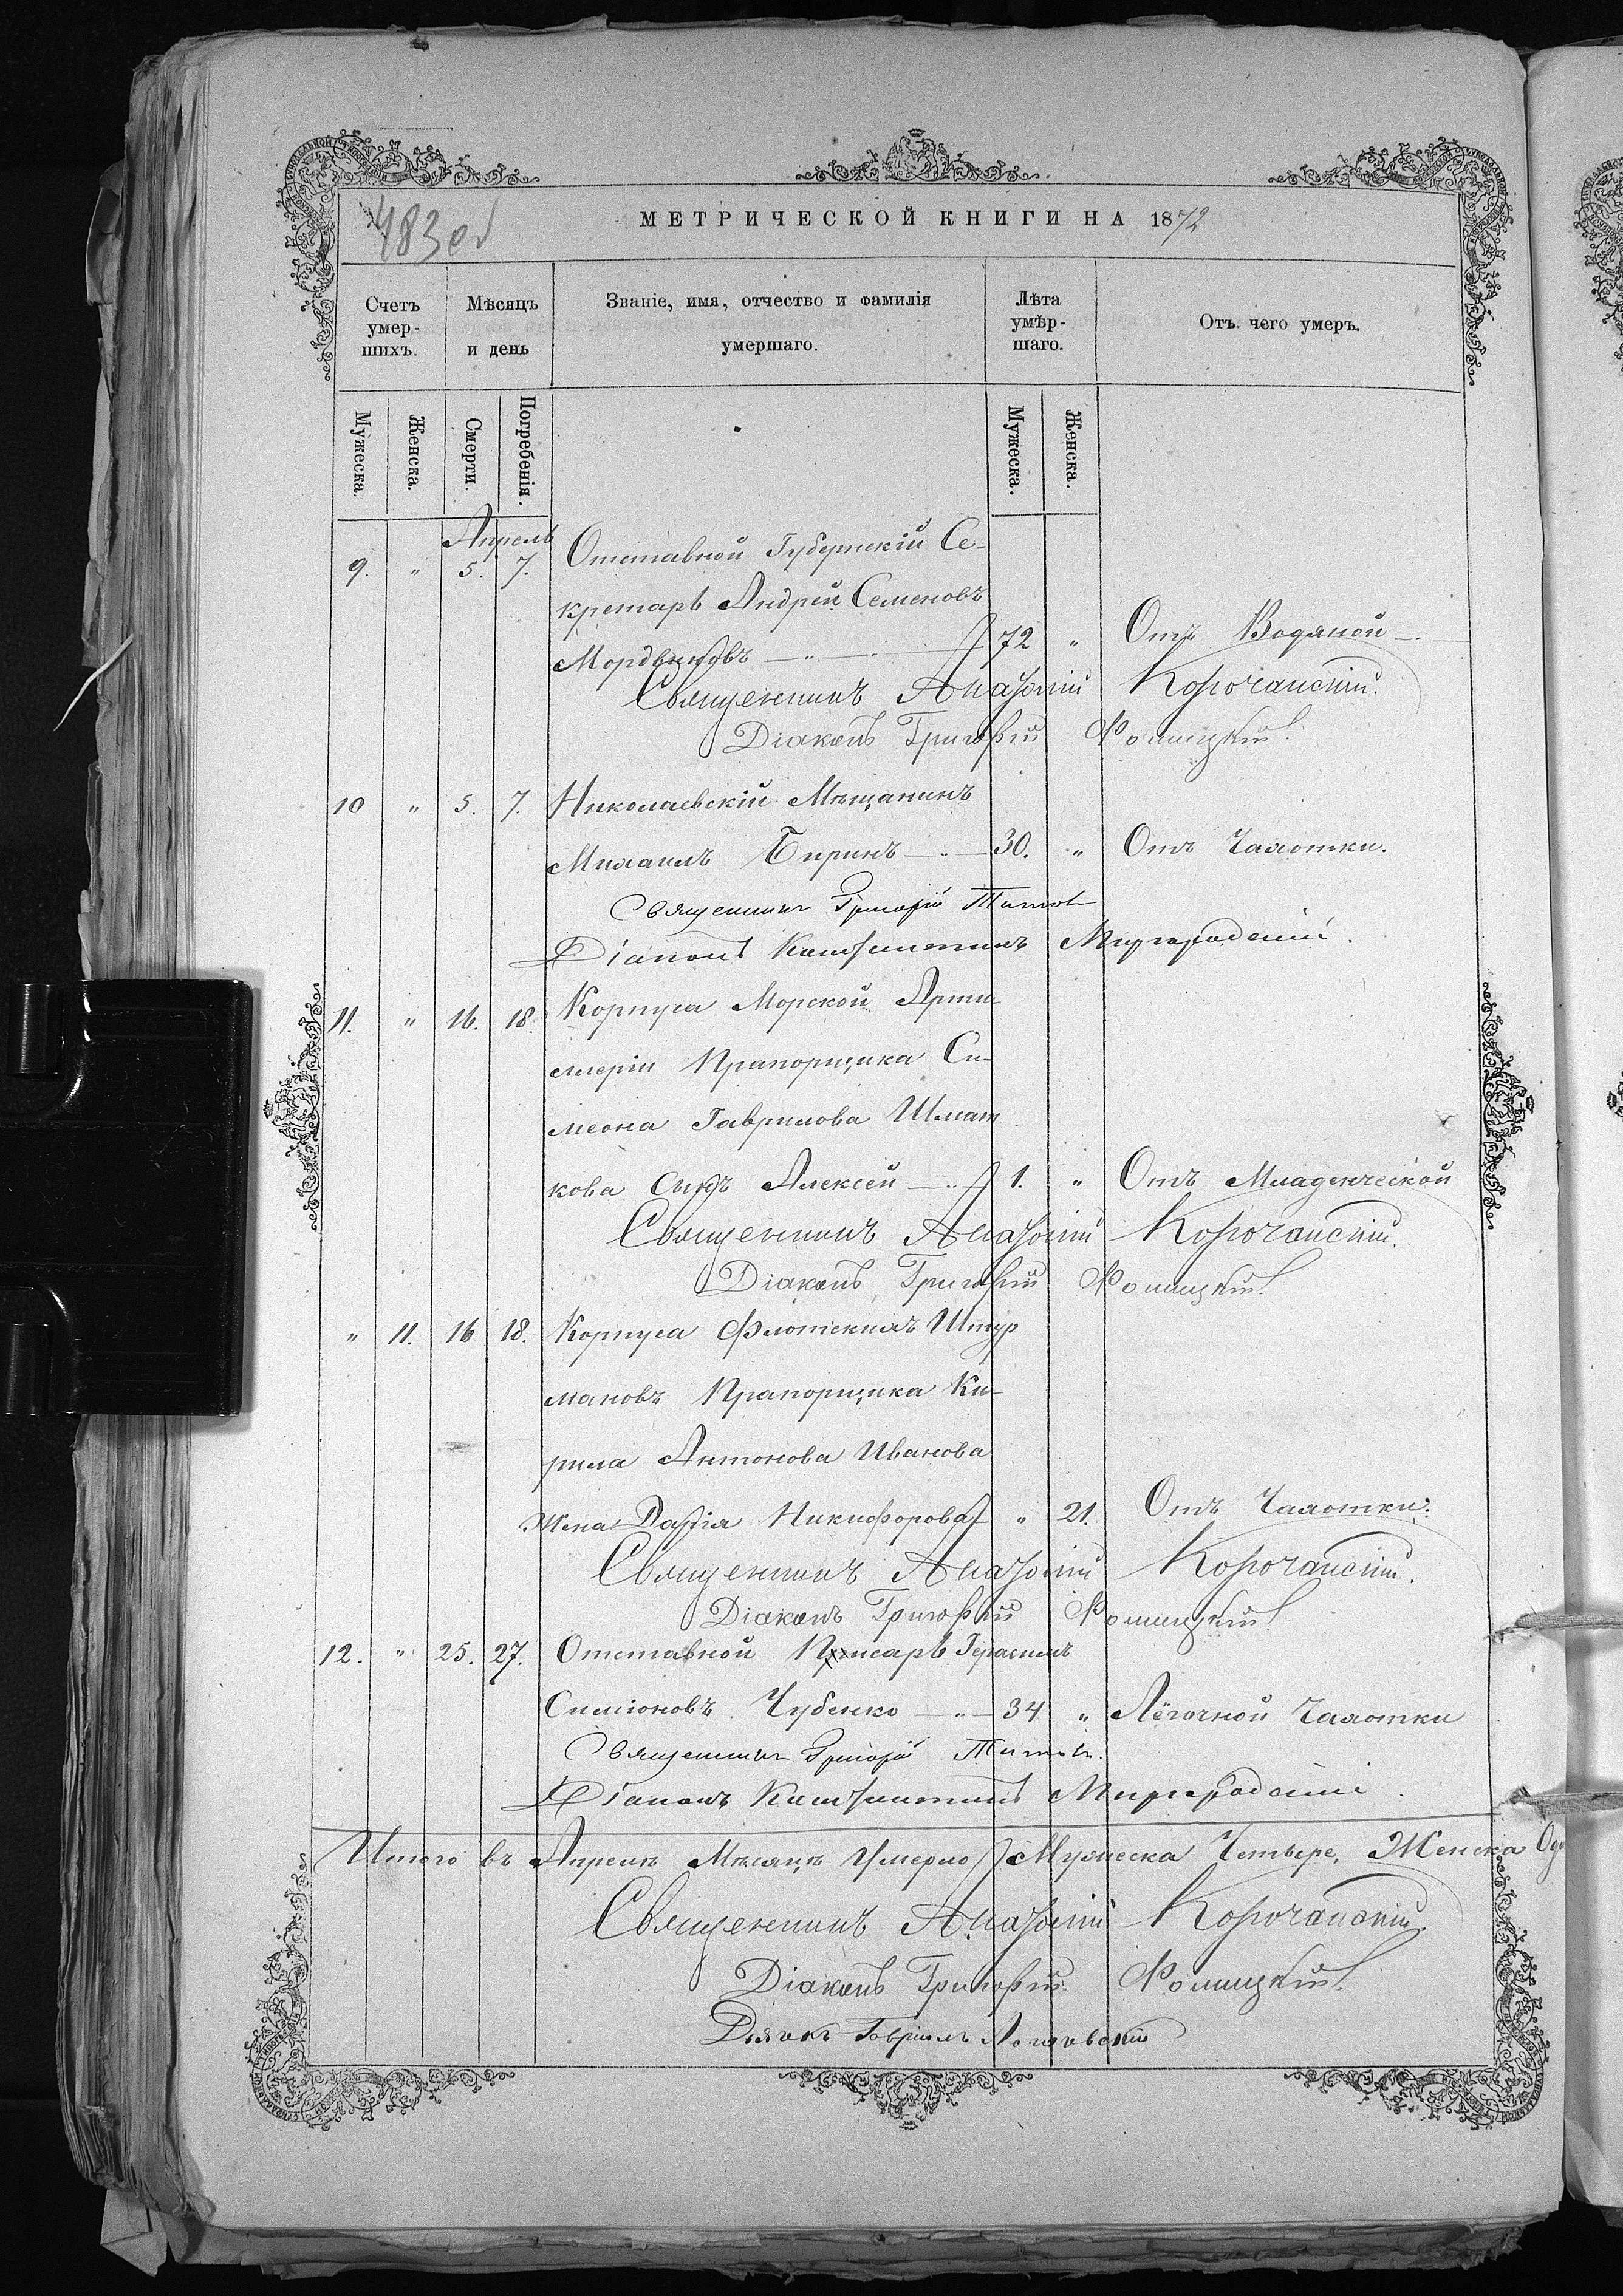 483 об
МЕТРИЧЕСКОЙ КНИГИ НА 1872
Счетъ умер- шихъ.
Мѣсяцъ и день
Званіе, имя, отчество и фамилія умершаго.
Лѣта умѣр- шаго.
Отъ чего умеръ.
Мужеска. Женска. Смерти. Погребенія. Мужеска. Женска.
Апрель
9. " 5. 7. Отставной Губернскій Се-
кретарь Андрей Семеновъ
Мордвиновъ 72 " Отъ Водяной
Священникъ Анатолій Корочанскій.
Діаконъ Григорій
10 " 5. 7. Николаевскій Мѣщанинъ
Михаилъ Биринъ 30. " Отъ Чахотки.
Священникъ Григорій Титов
Діаконъ Константинъ Миргородскій.
11. " 16. 18. Корпуса Морской Арти-
ллеріи Прапорщика Си-
меона Гаврилова Шмат
кова сынъ Алексей 1. " Отъ Младенческой
Священникъ Анатолій Корочанскій.
Діаконъ Григорій
" 11. 16 18. Корпуса Флотскихъ Штур
мановъ Прапорщика Ки-
рила Антонова Иванова
жена Дарія Никифорова " 21. Отъ Чахотки.
Священникъ Анатолій Корочанскій.
Діаконъ Григорій
12. " 25. 27. Отставной Писарь Герасимъ
Симіоновъ Чубенко 34 " Лёгочной Чахотки
Священникъ Григорій Титовъ.
Діаконъ Константинъ Миргородскій.
Итого въ Апреле Мѣсяце Умерло Мужеска Четыре, Женска Од
Священникъ Анатолій Корочанскій.
Діаконъ Григорій
Дьячокъ Гавріилъ